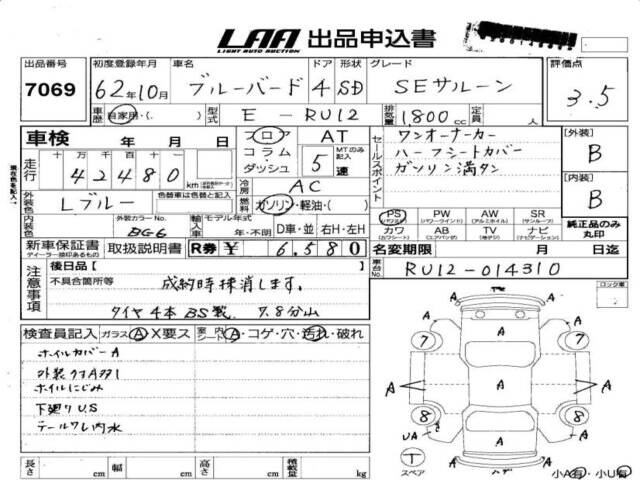 LAA 出品申込書
LIGHT AUTO AUCTION
出品番号 初度登録年月 車名 ドア 形状 グレード 評価点
7069 62年10月 ブルーバード 4 SD SEサルーン 3.5
車歴 自家用・( ) 型式 E-RU12 排気量 1,800cc 定員 人
車検 年 月 日 フロア AT セールスポイント ワンオーナーカー [外装]
走行 十万千百十一 コラム・ MTのみ記入 ハーフシートカバー B
42480 km ダッシュ 5速 ガソリン満タン [内装]
外装色 Lブルー 色替車は色替と記入 冷房 AC B
燃料 ガソリン・軽油・( )
内装色 外装カラーNo. BG6 輸入車 モデル年式 年・不明 D車・並 右H・左H
PS (パワステ) PW (パワーウインド) AW (アルミホイル) SR (サンルーフ) 純正品のみ丸印
カワ (カワシート) AB (エアバッグ) TV (地デジ) ナビ (ナビゲーション)
新車保証書 取扱説明書 R券 ¥ 6,580 名変期限 月 日迄
ディーラー捺印あるもの
車台No. RU12-014310
注意事項 後日品[ ]
不具合箇所等 成約時抹消します。
タイヤ4本BS製 7.8分山
ロック車
検査員記入 ガラス A X要ス 室内 シート A・コゲ・穴・汚れ・破れ
ホイルカバーA
ホイルにじみ
下廻りUS
テールワレ内水
A
7 A 7
A A A
8 8
UA A A
T スペア A
長さ cm 幅 cm 高さ cm 積載量 kg 小A有・小U有